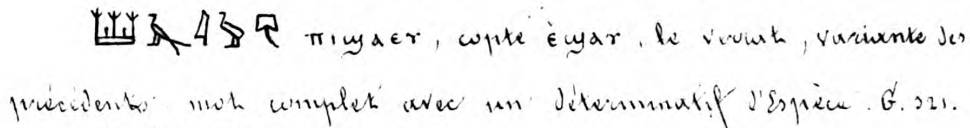 ⲡⲓϣⲁⲉⲩ, copte ⲉ̀ϣⲁⲩ, le verrat, variante des
précédents mot complet avec un déterminatif d'Espèce. G. 321.